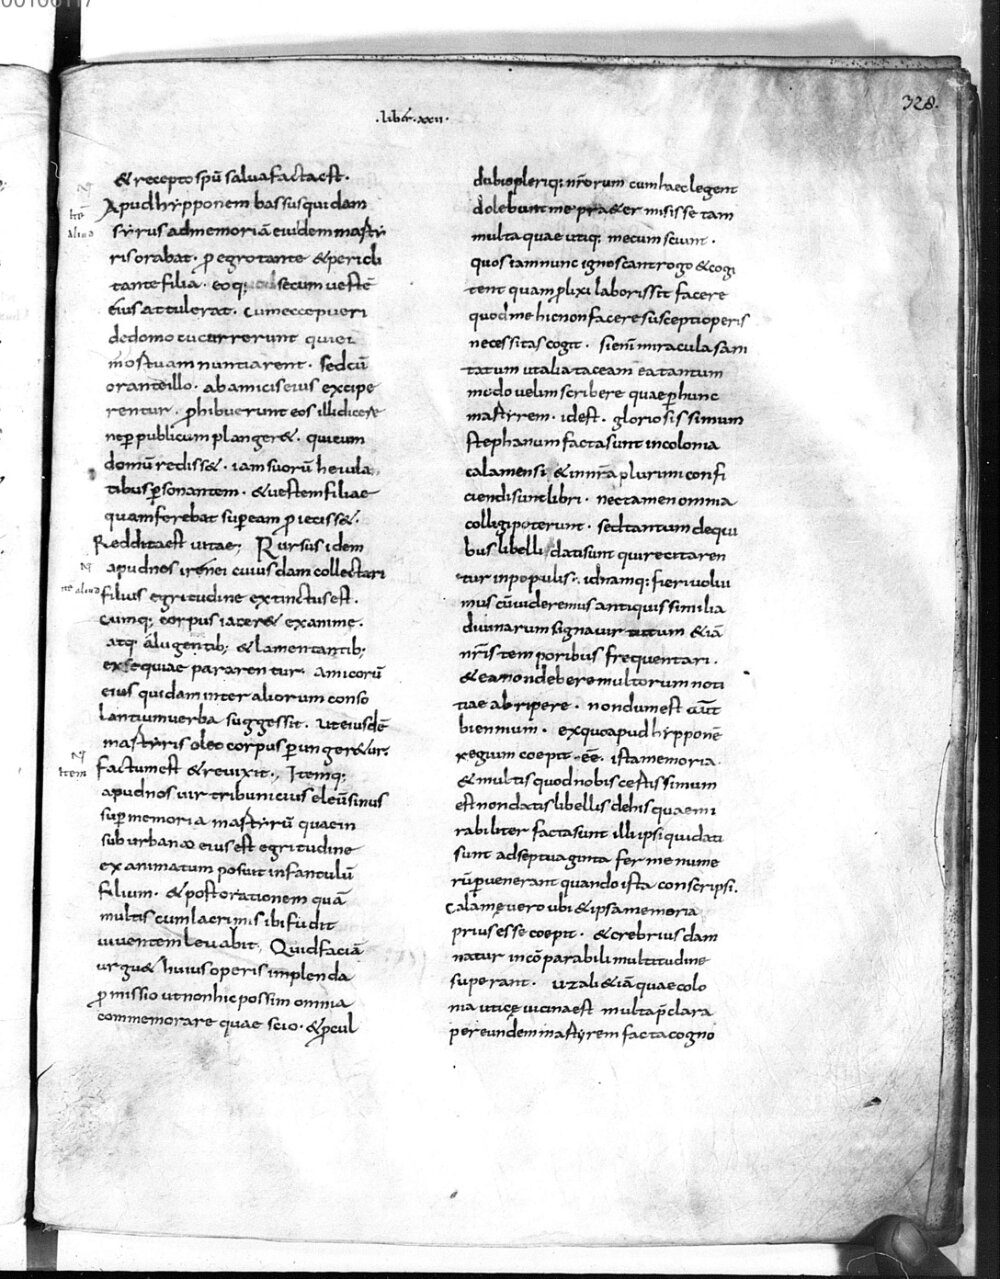 328.
.liber.xxii.
& recepto spū salua facta est.
Apud hypponem bassus quidam
syrus ad memoriā eiusdem marty
ris orabat. ꝓ egrotante & pericli
tante filia. eoq; secum uestē
eius attulerat. cum ecce pueri
de domo cucurrerunt qui ei
mortuam nuntiarent. sed cū
orante illo. ab amicis eius excipe
rentur. ꝓhibuerunt eos illi dicere
ne ꝑ publicum planger&. qui cum
domū rediss&. iam suorū heiula
tibus ꝑsonantem. & uestem filiae
quam ferebat suꝑ eam ꝓieciss&.
Reddita est uitae; Rursus idem
apud nos irenei cuiusdam collectari
filius egritudine extinctus est.
cumq; corpus iacer& exanime.
atq; a lugentib; & lamentantib;
exsequiae pararentur. amicorū
eius quidam inter aliorum conso
lantium uerba suggessit. ut eiusdē
martyris oleo corpus ꝑunger&ur.
factum est & reuixit. Itemq;
apud nos uir tribunicius eleusinus
suꝑ memoria martyrū quae in
suburbano eius est egritudine
exanimatum posuit infantulū
filium. & post orationem quā
multis cum lacrimis ibi fudit
uiuentem leuabit. Quid faciā
urgu& huius operis implenda
ꝓmissio ut non hic possim omnia
commemorare quae scio. & ꝓcul
dubio pleriq; nr̄orum cum haec legent
dolebunt me praetermisisse tam
multa quae utiq; mecum sciunt.
quos iam nunc ignoscant rogo & cogi
tent quam ꝓlixi laboris sit facere
quod me hic non facere suscepti operis
necessitas cogit. si enī miracula sani
tatum ut alia taceam ea tantum
modo uelim scribere quae ꝑ hunc
martyrem. id est. gloriosissimum
stephanum facta sunt in colonia
calamensi & in nr̄a plurimi confi
ciendi sunt libri. nec tamen omnia
colligi poterunt. sed tantum de qui
bus libelli dati sunt qui recitaren
tur in populis. id namq; fieri uolui
mus cū uideremus antiquis similia
diuinarum signa uirtutum & iā
nr̄is temporibus frequentari.
& ea non debere multorum noti
tiae abripere. nondum est aūt
biennium. ex quo apud hypponē
regium coepit eē. ista memoria
& multis quod nobis certissimum
est non datis libellis de his quae mi
rabiliter facta sunt illi ipsi qui dati
sunt ad septuaginta ferme nume
rū ꝑuenerant quando ista conscripsi.
Calamę uero ubi & ipsa memoria
prius esse coepit. & crebrius dam
natur incōparabili multitudine
superant. uzali & iā quae colo
nia uticę uicina est multa p̄clara
per eundem martyrem facta cogno